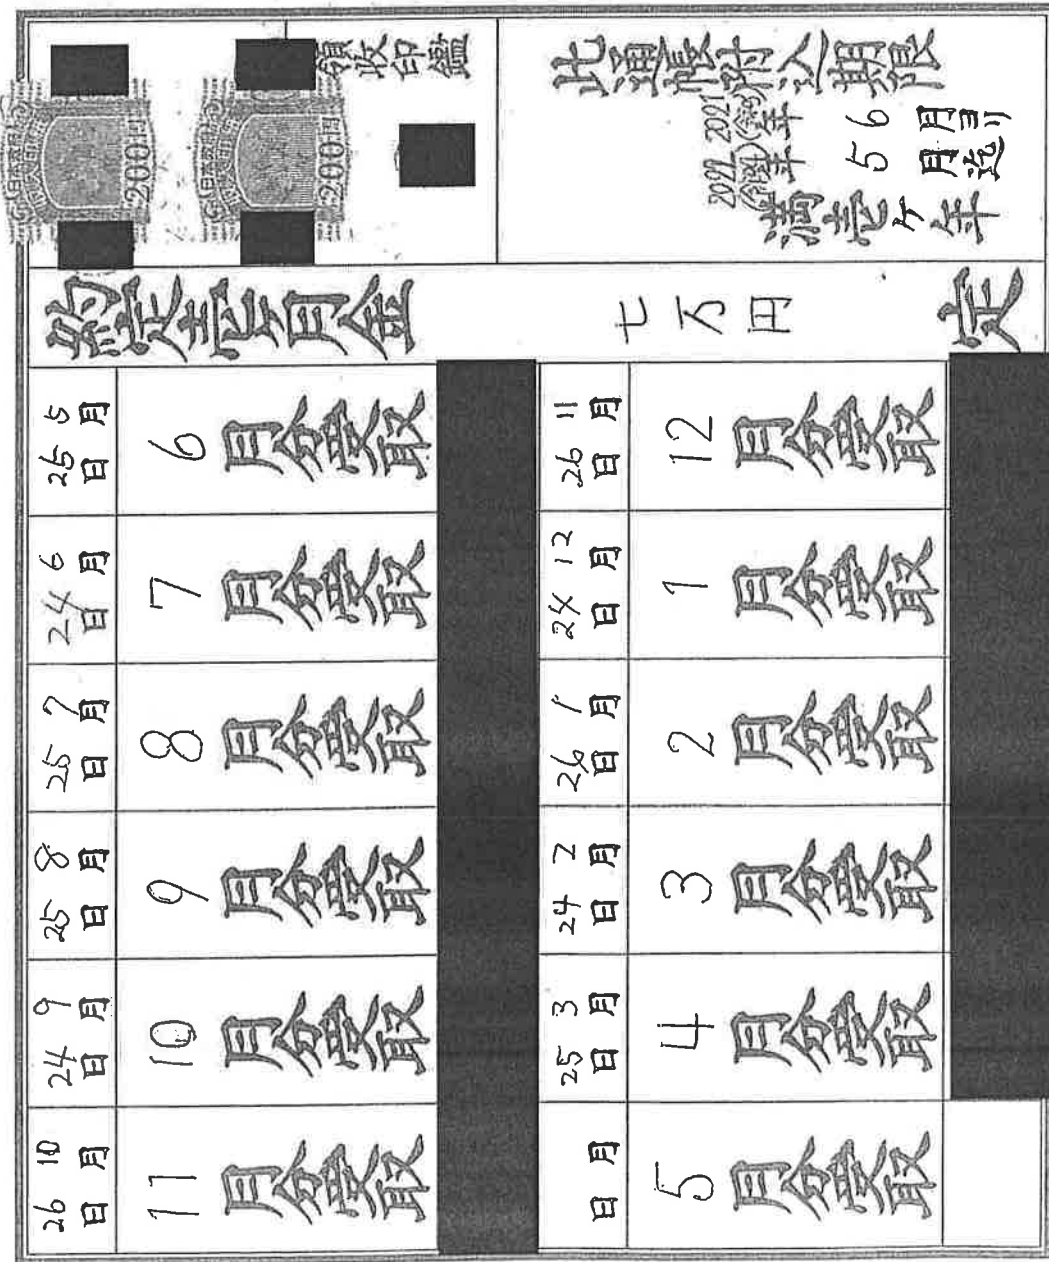 此通帳附込期限
2021(令3)年 6月ヨリ
2022(令4)年 5月迄
満壱ヶ年
領収印鑑
200円
200円
約定壱ヶ月金 七万円 定
5月25日 6月分受取
6月24日 7月分受取
7月25日 8月分受取
8月25日 9月分受取
9月24日 10月分受取
10月26日 11月分受取
11月26日 12月分受取
12月24日 1月分受取
1月26日 2月分受取
2月24日 3月分受取
3月25日 4月分受取
月 日 5月分受取